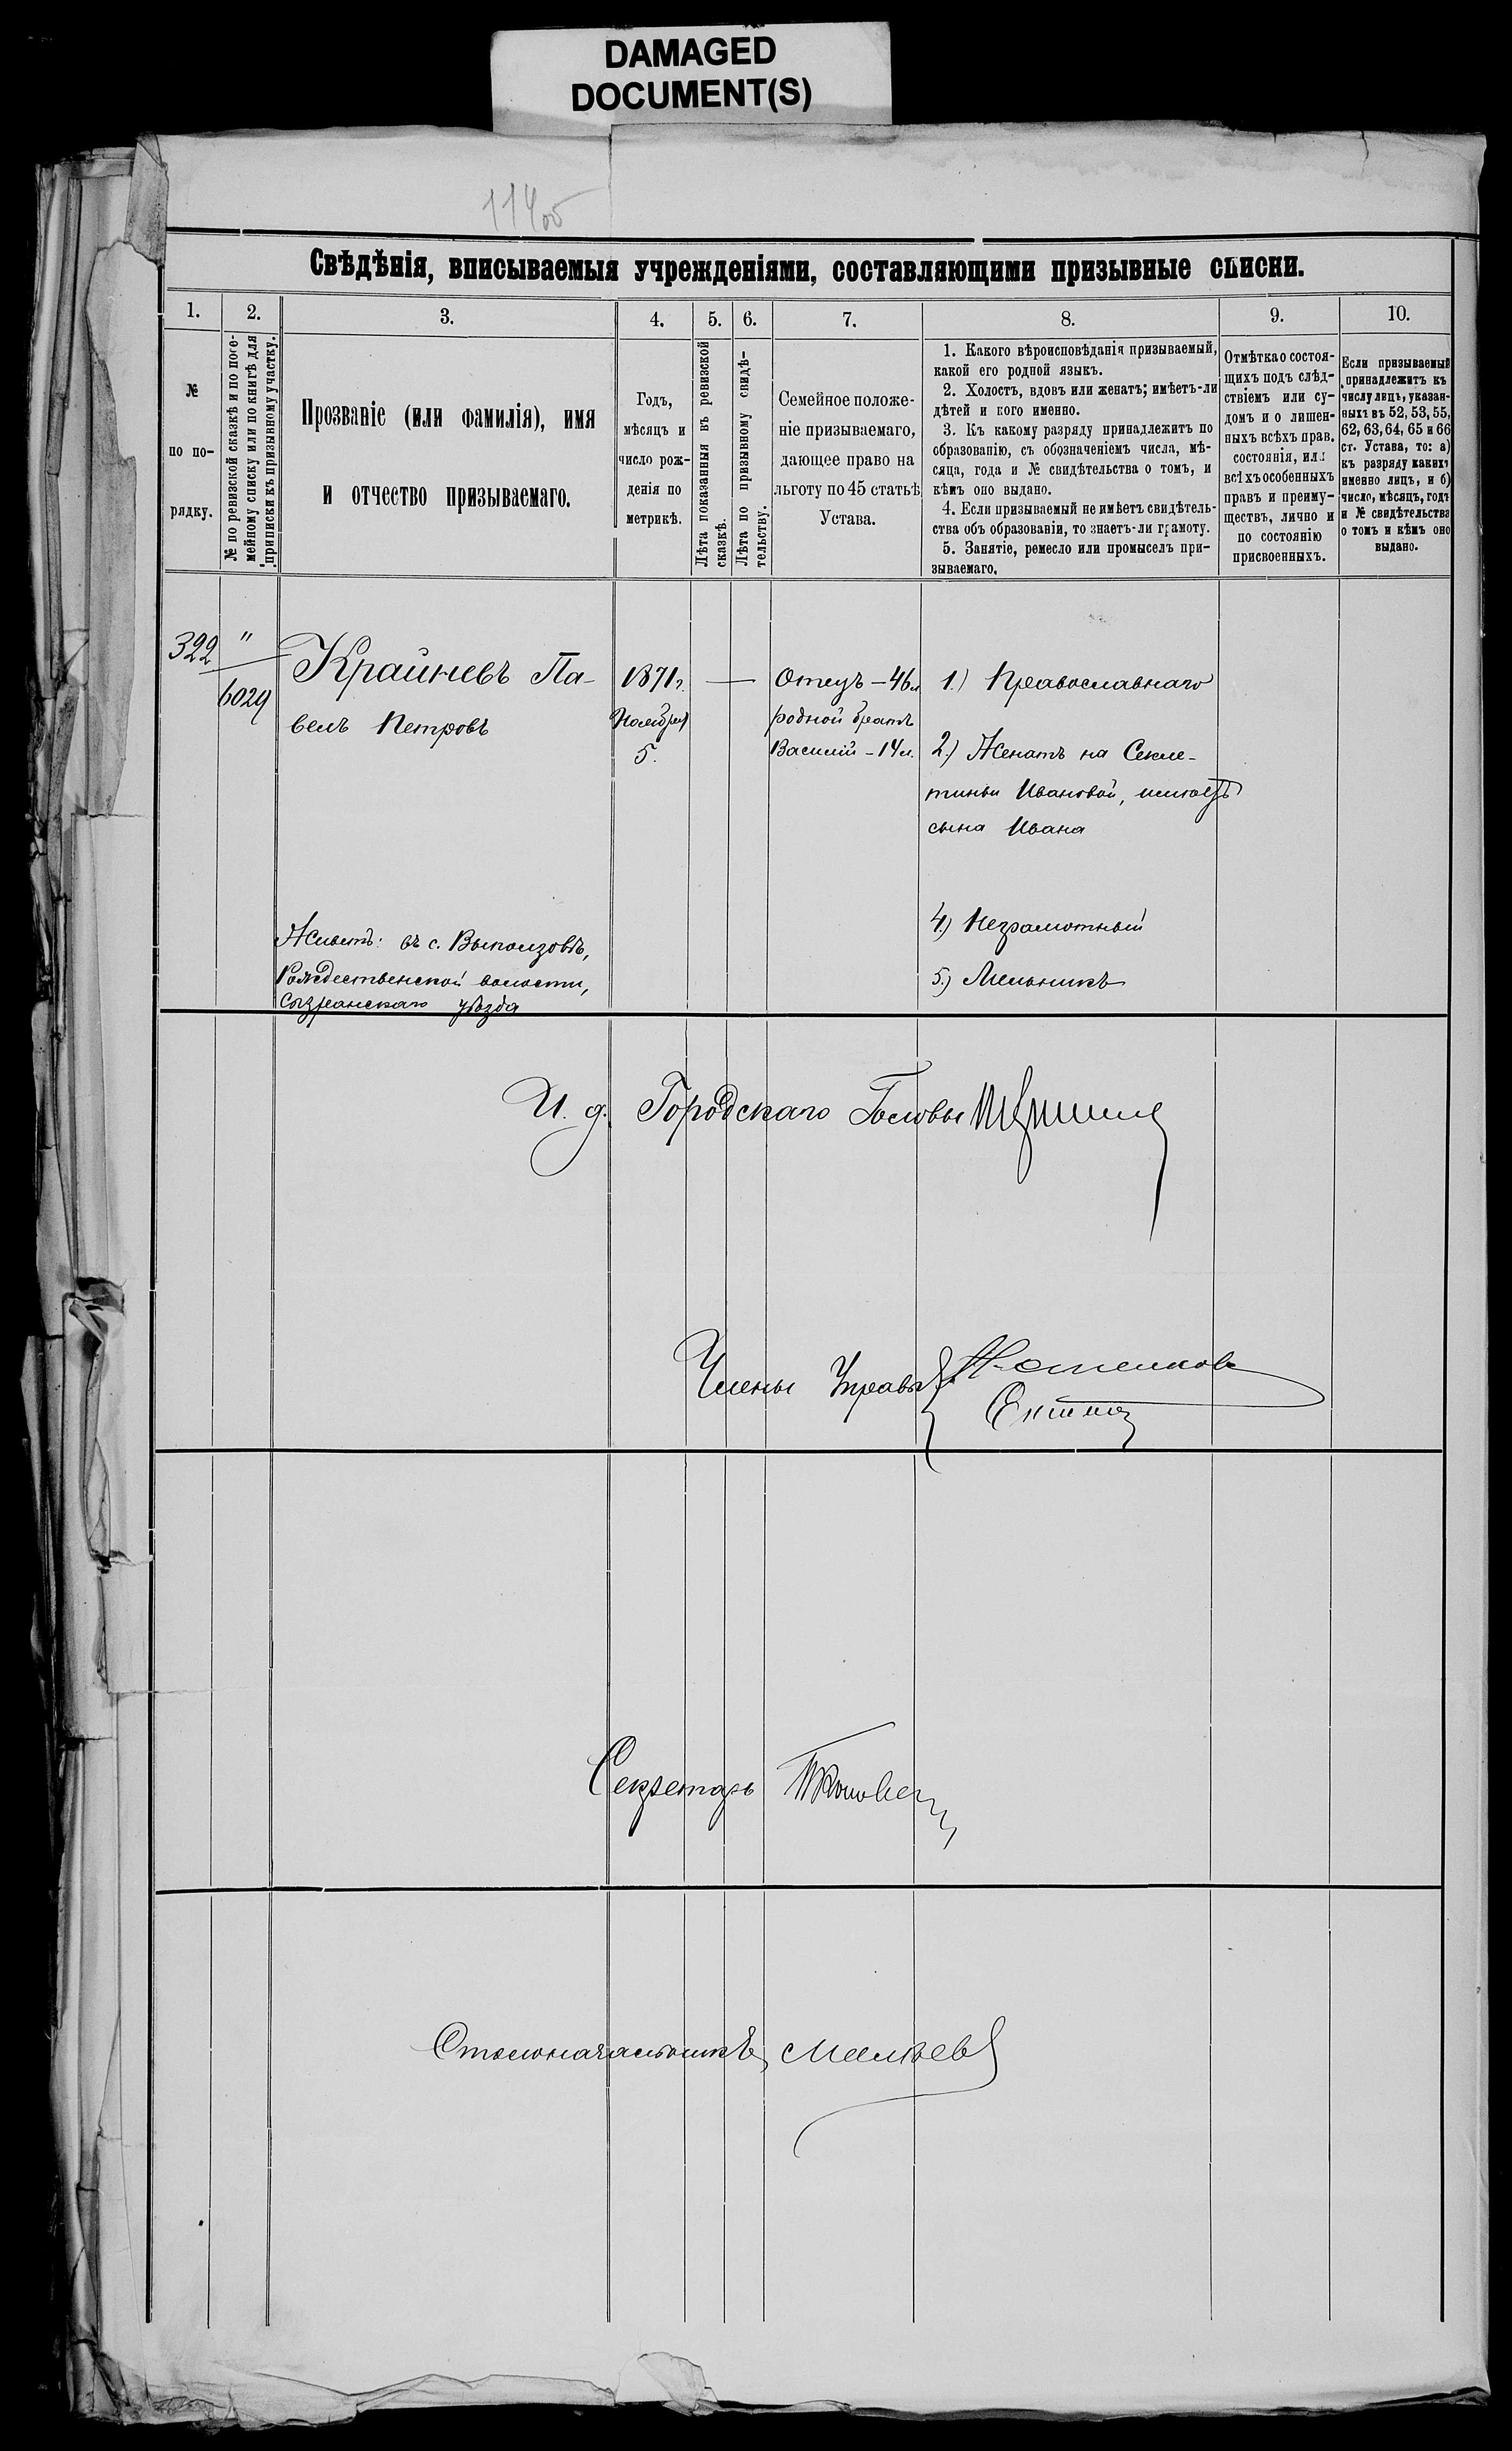 DAMAGED
DOCUMENT(S)
Свѣдѣнія, вписываемыя учрежденіями, составляющими призывные списки.
1.
2.
3.
4.
5.
6.
7.
8.
9.
10.
№
по по-
рядку.
№ по ревизской сказкѣ и по посе-
мейному списку или по книгѣ для
приписки къ призывному участку.
Прозваніе (или фамилія), имя
и отчество призываемаго.
Годъ,
мѣсяцъ и
число рож-
денія по
метрикѣ.
Лѣта показанныя въ ревизской
сказкѣ.
Лѣта по призывному свидѣ-
тельству.
Семейное положе-
ніе призываемаго,
дающее право на
льготу по 45 статьѣ
Устава.
1. Какого вѣроисповѣданія призываемый,
какой его родной языкъ.
2. Холостъ, вдовъ или женатъ; имѣетъ-ли
дѣтей и кого именно.
3. Къ какому разряду принадлежитъ по
образованію, съ обозначеніемъ числа, мѣ-
сяца, года и № свидѣтельства о томъ, и
кѣмъ оно выдано.
4. Если призываемый не имѣетъ свидѣтель-
ства объ образованіи, то знаетъ-ли грамоту.
5. Занятіе, ремесло или промыселъ при-
зываемаго.
Отмѣтка о состоя-
щихъ подъ слѣд-
ствіемъ или су-
домъ и о лишен-
ныхъ всѣхъ прав.
состоянія, или
всѣхъ особенныхъ
правъ и преиму-
ществъ, лично и
по состоянію
присвоенныхъ.
Если призываемый
принадлежитъ къ
числу лицъ, указан-
ныхъ въ 52, 53, 55,
62, 63, 64, 65 и 66
ст. Устава, то: а)
къ разряду какихъ
именно лицъ, и б)
число, мѣсяцъ, годъ
и № свидѣтельства
о томъ и кѣмъ оно
выдано.
322
"
6029
Крайневъ Па-
велъ Петровъ
1871 г.
Ноября
5.
Отецъ – 46 л
родной братъ
Василій – 14 л.
1.) Православнаго
2.) Женатъ на Секле-
тиньи Ивановой, имѣетъ
сына Ивана
4.) Неграмотный
5.) Мельникъ
Живетъ: въ с. Выползовѣ,
Рождественской волости,
Сызранскаго уѣзда
И. д. Городскаго Головы
Члены Управы
Секретарь
Столоначальникъ